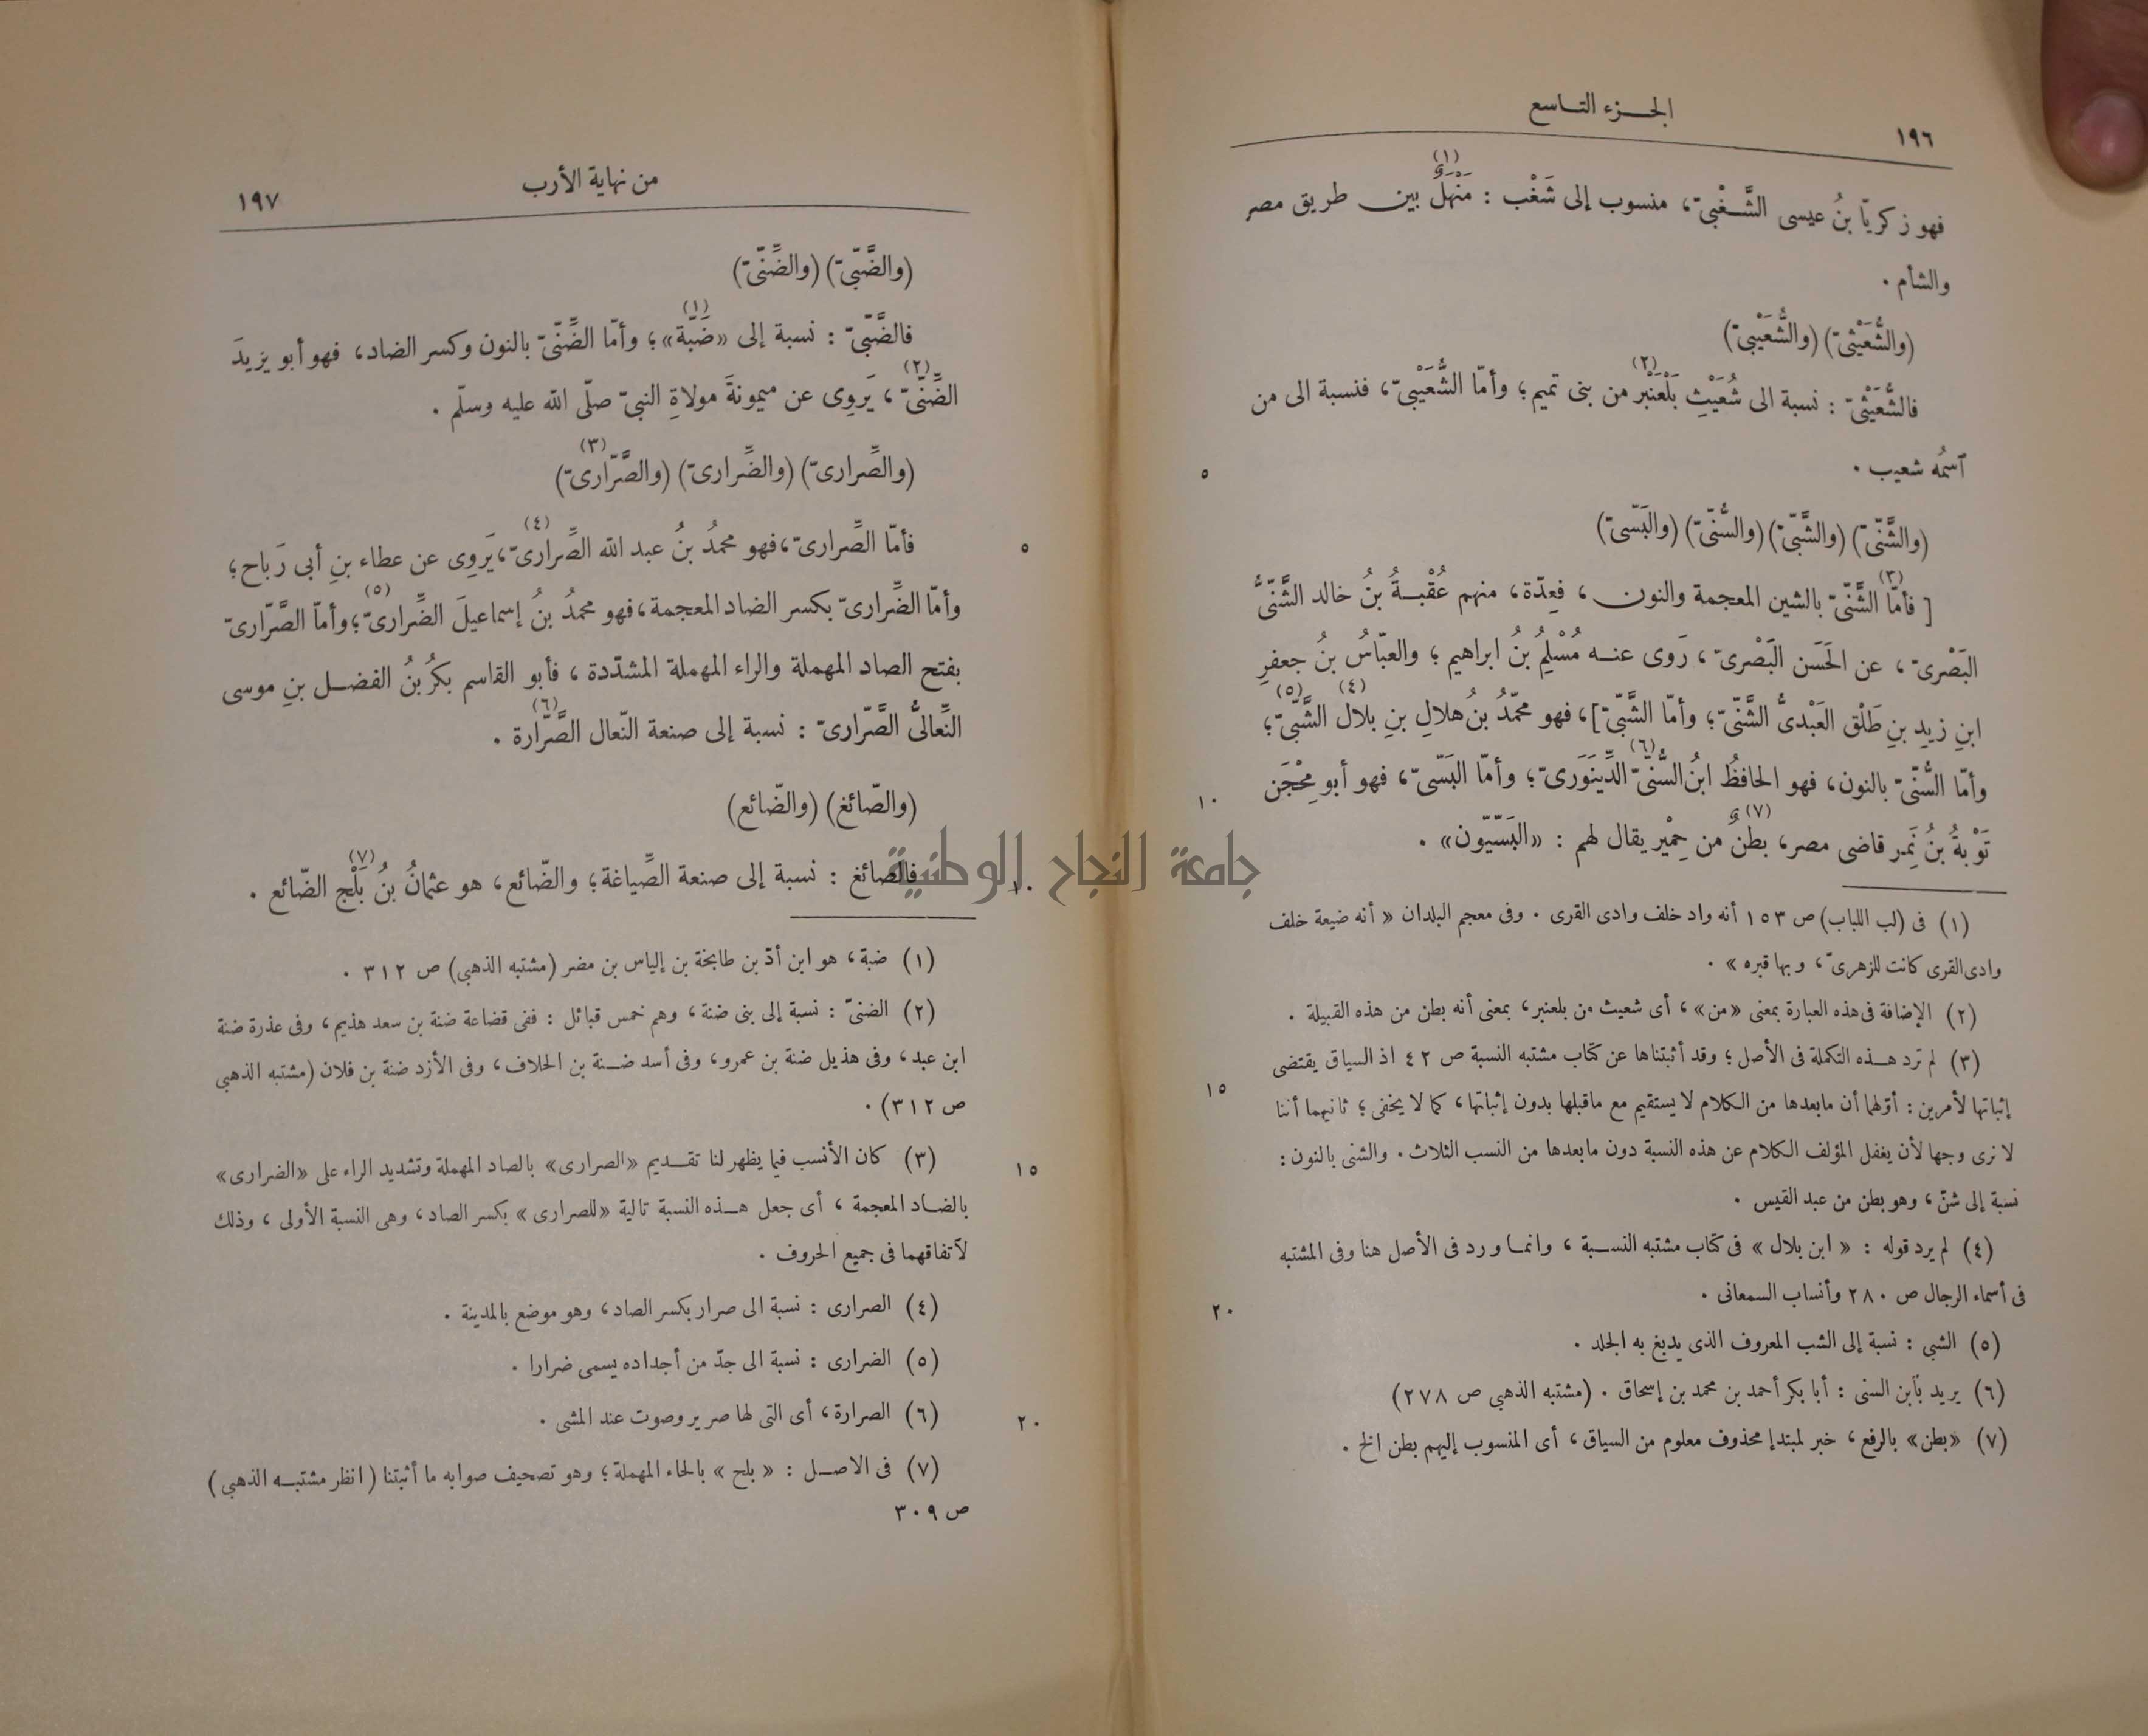 ١٩٦
الجـزء التـاسع
فهو زكريّا بنُ عيسى الشَّـغْبىّ، منسوب إلى شَغْب : مَنْهَلٌ (١) بين طريق مصر
والشأم .
(والشُّعَيْثىّ) (والشُّعَيْبىّ)
فالشُّعَيْثىّ : نسبة الى شُعَيْثِ بَلْعَنْبَر (٢) من بنى تميم؛ وأمّا الشُّعَيْبىّ، فنسبة الى من
آسمُه شعيب .
٥
(والشَّنّىّ) (والشَّبّىّ) (والسُّنّىّ) (والبَسّىّ)
[ فأمّا (٣) الشَّنّىّ بالشين المعجمة والنون، فعِدّة، منهم عُقْبـةُ بنُ خالد الشَّنّىُّ
البَصْرىّ، عن الحَسَن البَصْرىّ، رَوى عنـه مُسْلِمُ بنُ ابراهيم؛ والعبّاسُ بنُ جعفرِ
ابنِ زيدِ بنِ طَلْق العَبْدىُّ الشَّنّىّ؛ وأمّا الشَّبّىّ]، فهو محمّدُ بنُ هلالِ بنِ بلال (٤) الشَّبّىّ (٥)؛
وأمّا السُّنّىّ بالنون، فهو الحافظُ ابنُ السُّنّىّ (٦) الدِّينَوَرىّ؛ وأمّا البَسّىّ، فهو أبو مِحْجَن
١٠
تَوْبةُ بنُ نَمِر قاضى مصر، بطنٌ (٧) من حِمْير يقال لهم : «البَسّيّون» .
(١) فى (لب اللباب) ص ١٥٣ أنه واد خلف وادى القرى . وفى معجم البلدان « أنه ضيعة خلف
وادى القرى كانت للزهرىّ، وبها قبره » .
(٢) الإضافة فى هذه العبارة بمعنى «من»، أى شعيث من بلعنبر، بمعنى أنه بطن من هذه القبيلة .
(٣) لم ترد هـذه التكملة فى الأصل؛ وقد أثبتناها عن كتاب مشتبه النسبة ص ٤٢ اذ السياق يقتضى
١٥
إثباتها لأمرين : أوّلهما أن مابعدها من الكلام لا يستقيم مع ماقبلها بدون إثباتها، كما لا يخفى؛ ثانيهما أننا
لا نرى وجها لأن يغفل المؤلف الكلام عن هذه النسبة دون مابعدها من النسب الثلاث . والشنى بالنون :
نسبة إلى شنّ، وهو بطن من عبد القيس .
(٤) لم يرد قوله : « ابن بلال » فى كتاب مشتبه النسـبة، وانمـا ورد فى الأصل هنا وفى المشتبه
فى أسماء الرجال ص ٢٨٠ وأنساب السمعانى .
٢٠
(٥) الشبي : نسبة إلى الشب المعروف الذى يدبغ به الجلد .
(٦) يريد بآبن السنى : أبا بكر أحمد بن محمد بن إسحاق . (مشتبه الذهبي ص ٢٧٨)
(٧) «بطن» بالرفع، خبر لمبتدإ محذوف معلوم من السياق، أى المنسوب إليهم بطن الخ .
من نهاية الأرب
١٩٧
(والضَّبّىّ) (والضِّنّىّ)
فالضَّبّىّ : نسبة إلى «ضَبّة» (١)؛ وأمّا الضِّنّىّ بالنون وكسر الضاد، فهو أبو يزيدَ
الضِّنّىّ (٢)، يَروِى عن ميمونةَ مولاةِ النبىّ صلّى الله عليه وسلّم .
(والصِّرارىّ) (والضِّرارىّ) (والصَّرّارىّ) (٣)
فأمّا الصِّرارىّ، فهو محمدُ بنُ عبد الله الصِّرارىّ (٤)، يَروِى عن عطاء بنِ أبى رَباح؛
٥
وأمّا الضِّرارىّ بكسر الضاد المعجمة، فهو محمدُ بنُ إسماعيلَ الضِّرارىّ (٥)؛ وأمّا الصَّرّارىّ
بفتح الصاد المهملة والراء المهملة المشدّدة، فأبو القاسم بكرُ بنُ الفضـل بنِ موسى
النِّعالىُّ الصَّرّارىّ : نسبة إلى صنعة النّعال الصَّرّارة (٦) .
(والصّائغ) (والضّائع)
فالصائغ : نسبة إلى صنعة الصِّياغة؛ والضّائع، هو عثمانُ بنُ بَلْج (٧) الضّائع .
١٠
جامعة النجاح الوطنية
(١) ضبة، هو ابن أدّ بن طابخة بن إلياس بن مضر (مشتبه الذهبي) ص ٣١٢ .
(٢) الضنىّ : نسبة إلى بنى ضنة، وهم خمس قبائل : ففى قضاعة ضنة بن سعد هذيم، وفى عذرة ضنة
ابن عبد، وفى هذيل ضنة بن عمرو، وفى أسد ضـنة بن الحلاف، وفى الأزد ضنة بن فلان (مشتبه الذهبي
ص ٣١٢) .
(٣) كان الأنسب فيما يظهر لنا تقـديم «الصرارى» بالصاد المهملة وتشديد الراء على «الضرارى»
١٥
بالضـاد المعجمة، أى جعل هـذه النسبة تالية «للصرارى» بكسر الصاد، وهى النسبة الأولى، وذلك
لآتفاقهما فى جميع الحروف .
(٤) الصرارى : نسبة الى صرار بكسر الصاد، وهو موضع بالمدينة .
(٥) الضرارى : نسبة الى جدّ من أجداده يسمى ضرارا .
(٦) الصرارة، أى التى لها صرير وصوت عند المشى .
٢٠
(٧) فى الاصـل : « بلح » بالحاء المهملة؛ وهو تصحيف صوابه ما أثبتنا (انظر مشتبـه الذهبي)
ص ٣٠٩